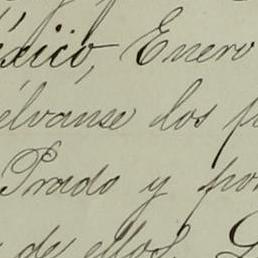 éxico, Enero
élvanse los p
Prado y por
de ellos. G